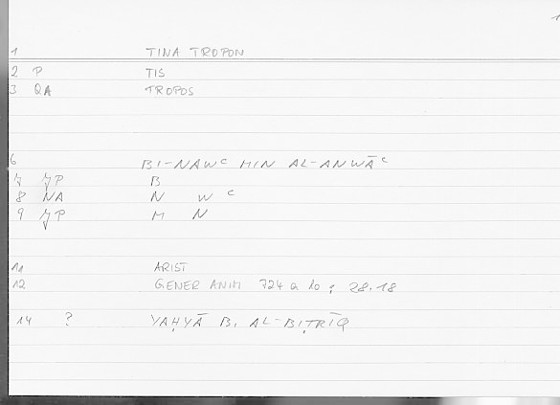 1
1 TINA TROPON
2 P TIS
3 QA TROPOS
6 BI-NAWʿ MIN AL-ANWĀʿ
B
8 NA N W ʿ
9 M N
11 ARIST
12 GENER ANIM 724 a 10 ; 28.18
14 ? YAḤYĀ B. AL-BIṬRĪQ